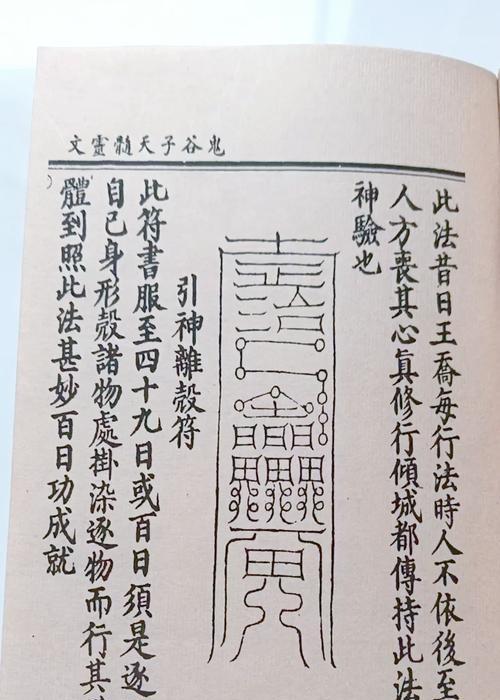 鬼谷子天髓靈文
此法昔日王喬每行法時人不依後至
人方喪其心眞修行傾城都傳持此法
神驗也
引神離殼符
此符書服至四十九日或百日須是逐
自己身形殼諸物處掛染逐物而行其
體到照此法甚妙百日功成就